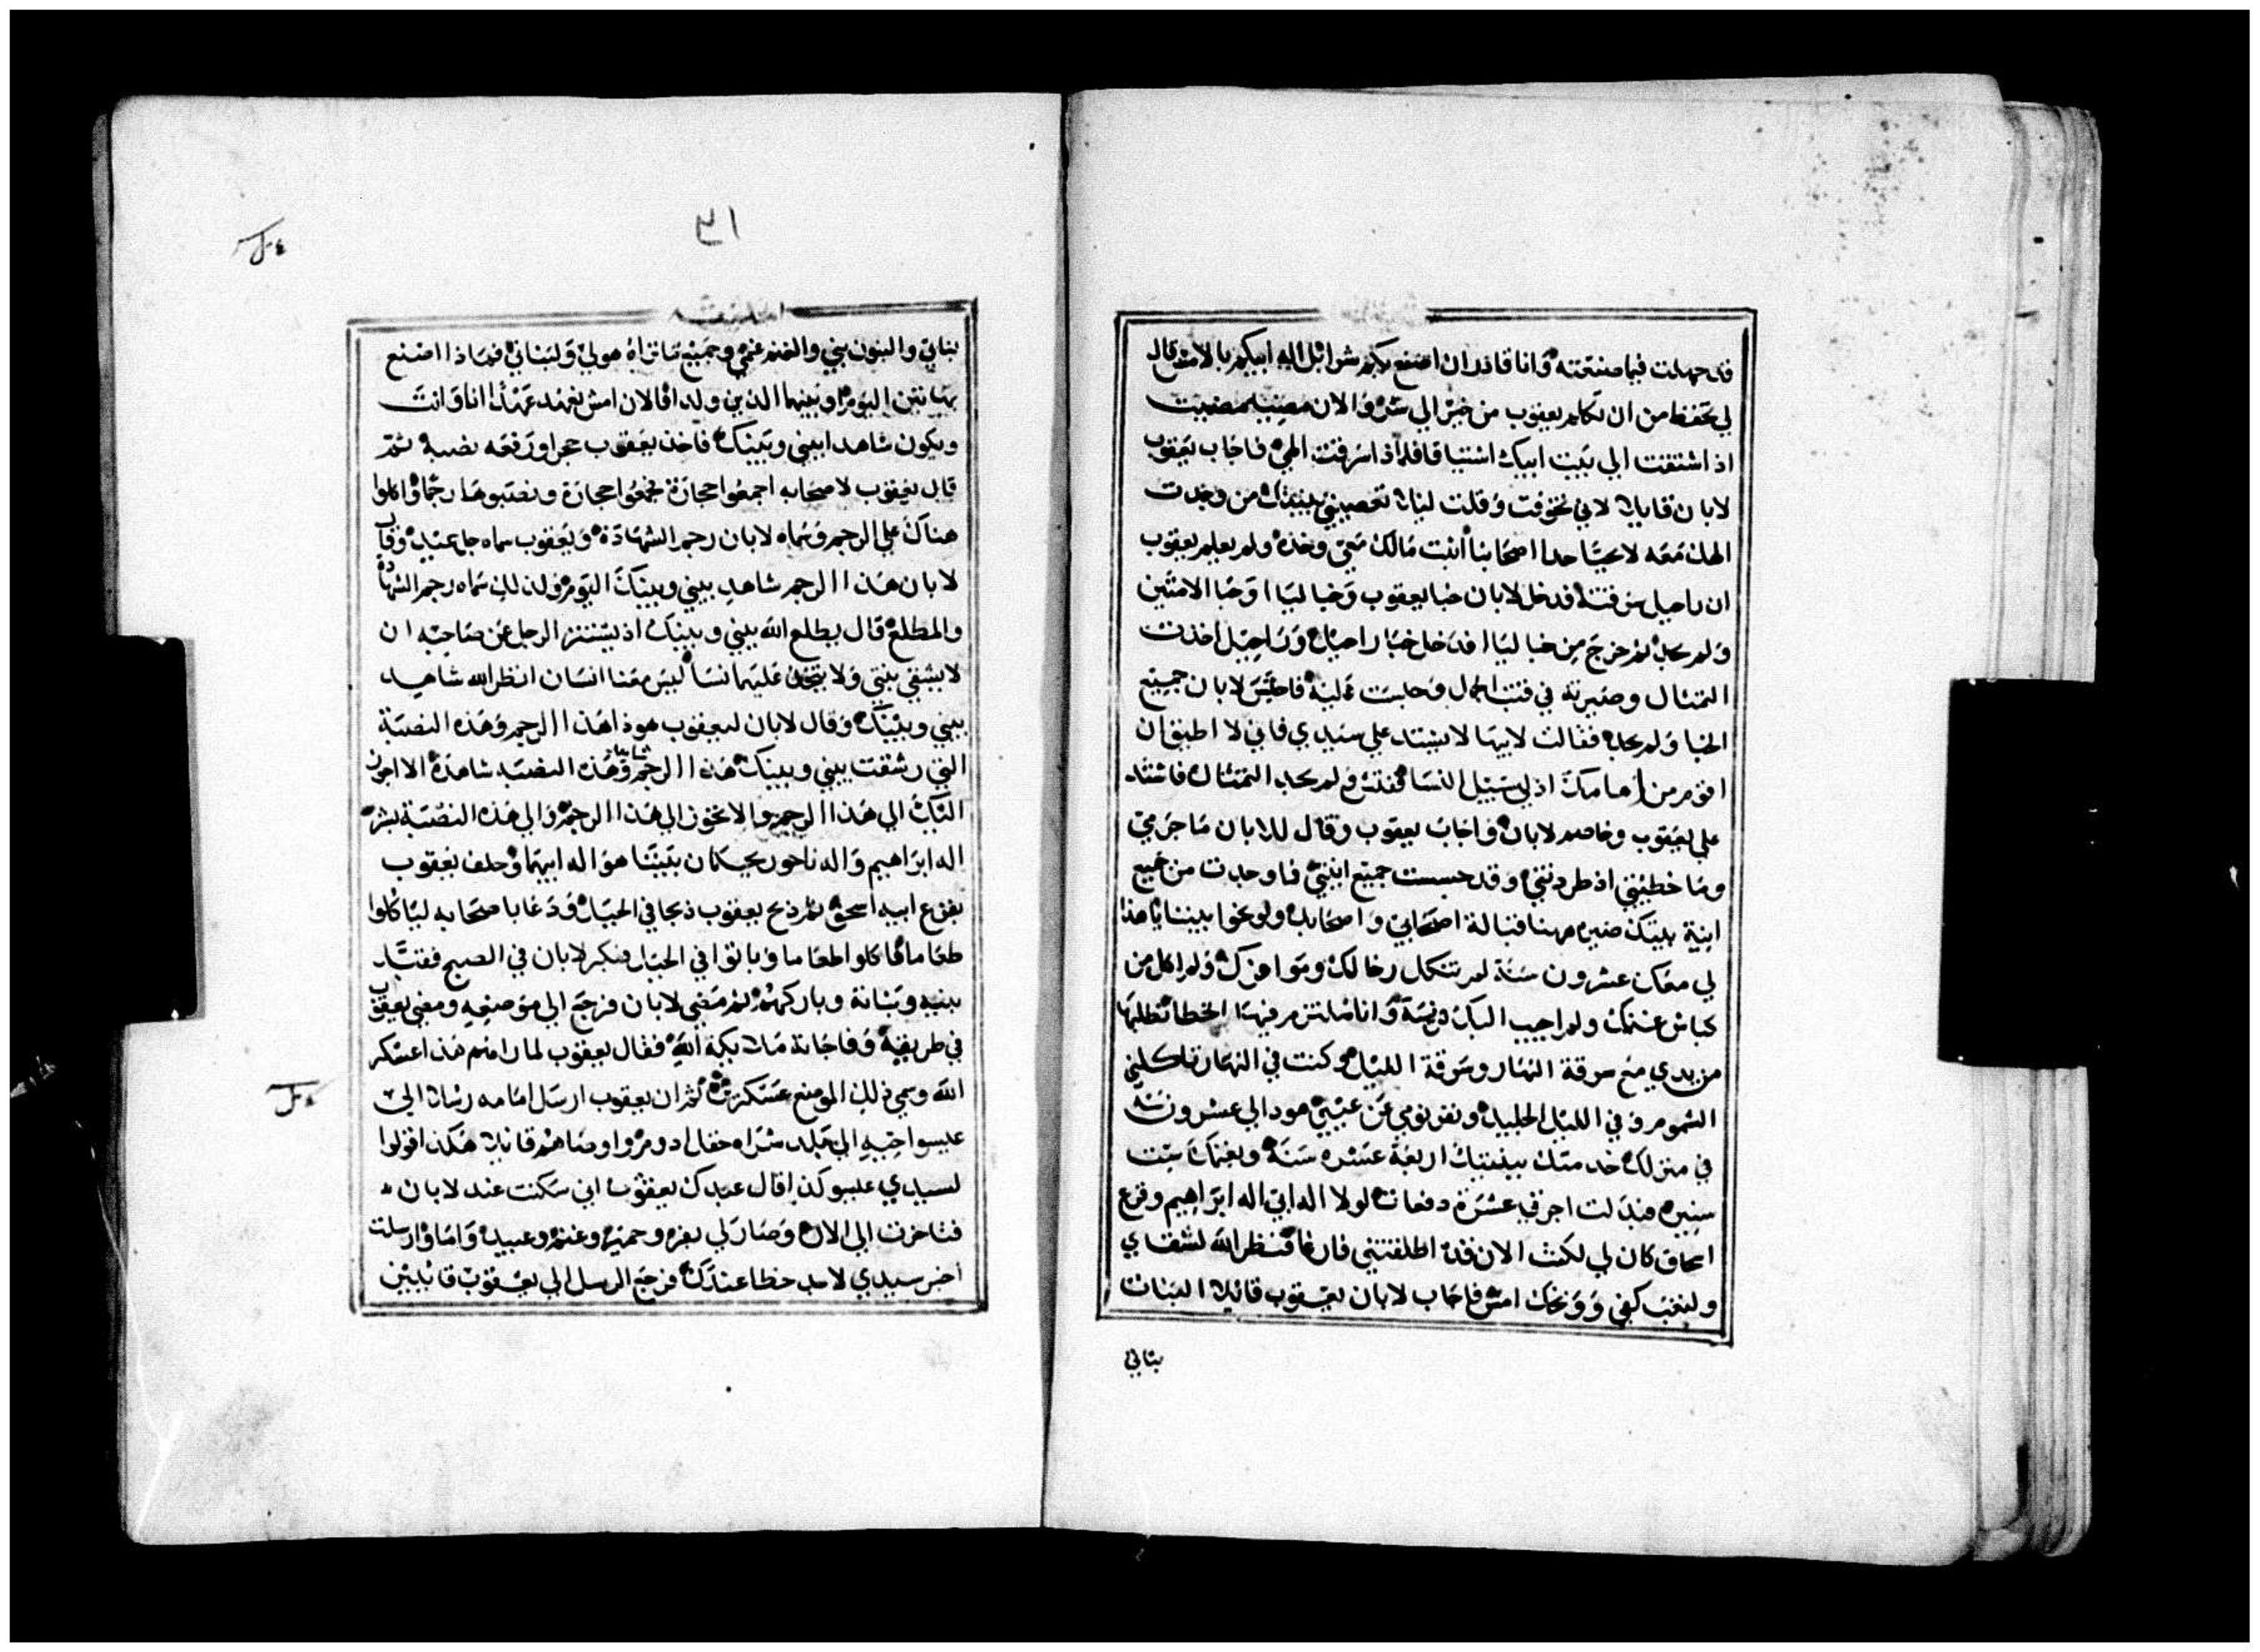 قد جهلت فيما صنعته وانا قادر ان اصنع بكم شرا بل اله ابيكم بالامس قال
لي تحفظ من ان تكلم يعقوب من خير الي شر والان مضيت
اذ اشتقت الي بيت ابيك اشتياقا فلماذا سرقت الهي فاجاب يعقوب
لابان قايلا لاني تخوفت وقلت ليلا تغصبني بنتيك من وجدت
الهك معه لا يحيا حدا اصحابنا اثبت مالك معي وخذه ولم يعلم يعقوب
ان راحيل سرقته فدخل لابان خبا يعقوب وخبا ليا وخبا الامتين
ولم يجد ثم خرج من خبا ليا فدخل خبا راحيل وراحيل اخذت
التمثال وصيرته في قتب الجمل وجلست عليه فاجتس لابان جميع
الخبا ولم يجد فقالت لابيها لا يشتد علي سيدي فاني لا اطيق ان
اقوم من امامك اذ لي سبيل النسا ففتش ولم يجد التمثال فاشتد
علي يعقوب وخاصم لابان واجاب يعقوب وقال للابان ما جرمي
وما خطيتي اذ طردتني وقد جسست جميع انيتي فما وجدت من جميع
انية بيتك صيره ههنا قبالة اصحابي واصحابك وليوبخوا بيننا يا هذا
لي معك عشرون سنة لم تثكل رخالك ومواعزك ولم اكل من
كباش غنمك ولم اجيب اليك فريسة وانا ملتزم فيها الخطا تطلبها
من يدي مع سرقة النهار وسرقة الليل وكنت في النهار تاكلني
السموم وفي الليل الجليد ونفر نومي عن عيني هودا لي عشرون سنه
في منزلك خدمتك ببنتيك اربعة عشره سنة وبغنمك ست
سنين فبدلت اجرتي عشرة دفعات لولا اله ابي اله ابراهيم وفزع
اسحاق كان لي لكنت الان قد اطلقتني فارغا فنظر الله لشقاي
ولتعب كفي ووبخك امس فاجاب لابان ليعقوب قائلا البنات
بناتي
٣١
بناتي والبنون بني والغنم غنمي وجميع ما تراه هو لي ولبناتي فماذا اصنع
بهاتين اليوم او بنيهما الذين ولدا فالان امش نعهد عهدا انا وانت
ويكون شاهدا بيني وبينك فاخذ يعقوب حجرا ورفعه نصبة ثم
قال يعقوب لاصحابه اجمعوا حجارة فجمعوا حجارة ونصبوها رجما واكلوا
هناك علي الرجم وسماه لابان رجم الشهادة ويعقوب سماه جل عيد وقال
لابان هذا الرجم شاهد بيني وبينك اليوم ولذلك سماه رجم الشهادة
والمطلع قال يطلع الله بيني وبينك اذ يستتر الرجل عن صاحبه ان
لا يشقي بنتي ولا يتخذ عليهما نسا ليس معنا انسان انظر الله شاهد
بيني وبينك وقال لابان ليعقوب هوذا هذا الرجم وهذه النصبة
التي رشقت بيني وبينك هذا الرجم شاهد وهذه النصبه شاهدة الا اجوز
اليك الي هذا الرجم والا تجوز الي هذا الرجم والي هذه النصبة بشر
اله ابراهيم واله ناحور يحكمان بيننا هو اله ابيهما وحلف يعقوب
بفزع ابيه اسحق ثم ذبح يعقوب ذبحا في الجبل ودعا باصحابه لياكلوا
طعاما فاكلوا طعاما وباتوا في الجبل فبكر لابان في الصبح فقبل
بنيه وبناته وباركهم ثم مضي لابان فرجع الي موضعه ومضي يعقوب
في طريقه وفاجاته ملايكة الله فقال يعقوب لما راهم هذا عسكر
الله وسمي ذلك الموضع عسكرين ثم ان يعقوب ارسل امامه رسلا الي
عيسوا خيه الي بلد شراه حقل ادوم واوصاهم قايلا هكذا قولوا
لسيدي عيسو كذا قال عبدك يعقوب اني سكنت عند لابان
فتاخرت الي الان وصار لي بقر وحمير وغنم وعبيد واما وارسلت
اخبر سيدي لاجد حظا عندك فرجع الرسل الي يعقوب قائيلين